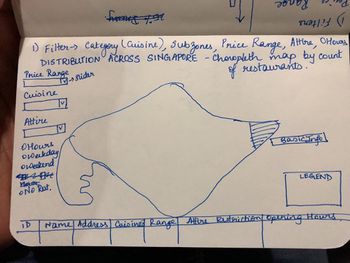 1) Filters
Price Range
1) Filter → Category (Cuisine), Subzones, Price Range, Attire, OHours
DISTRIBUTION ACROSS SINGAPORE - Choropleth map by count
of restaurants.
Price Range
→ slider
Cuisine
Attire
OHours
o Weekday
o Weekend
o No Rst.
Basic Info
LEGEND
ID Name Address Cuisine Range Attire Restriction Opening Hours